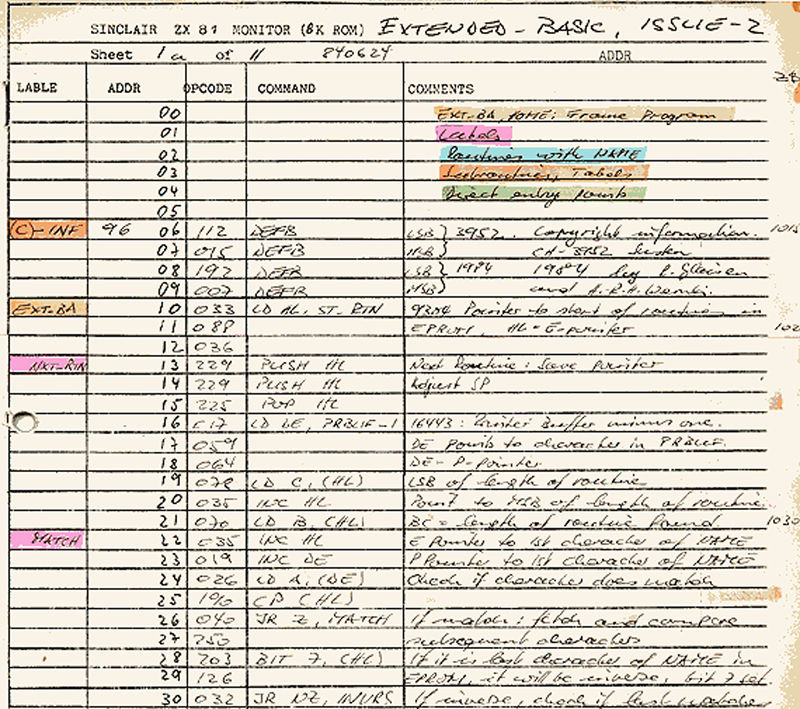 SINCLAIR ZX 81 MONITOR (8K ROM) EXTENDED - BASIC, ISSUE-2
Sheet 1a of 11 840624 ADDR
LABLE ADDR OPCODE COMMAND COMMENTS
00 EXT-BA, HOME: Frame Program
01 Labels
02 Routines with NAME
03 Subroutines, Tabels
04 Direct entry points
05
(C)-INF 96 06 112 DEFB LSB } 3952. Copyright information. 1015
07 015 DEFB MSB } CH-3952 Susten
08 192 DEFB LSB } 1984 1984 by
09 007 DEFB MSB } and
EXT-BA 10 033 LD HL, ST. RTN Pointer to start of routines in
11 EPROM, HL = E-pointer
12 036
NXT-RTN 13 229 PUSH HL Next Routine: Save pointer
14 229 PUSH HL Adjust SP
15 225 POP HL
16 017 LD DE, PRBUF-1 16443: Printer Buffer minus one.
17 059 DE points to character in PRBUF.
18 064 DE = P-pointer
19 078 LD C, (HL) LSB of length of routine
20 035 INC HL Point to MSB of length of routine.
21 070 LD B, (HL) BC = length of routine found 1030
MATCH 22 035 INC HL E Pointer to 1st character of NAME
23 019 INC DE P Pointer to 1st character of NAME
24 026 LD A, (DE) Check if character does match
25 190 CP (HL)
26 040 JR Z, MATCH If match: fetch and compare
27 250 subsequent characters
28 203 BIT 7, (HL) If it is last character of NAME in
29 126 EPROM, it will be inverse, bit 7 set.
30 032 JR NZ, INVRS If inverse, check if last